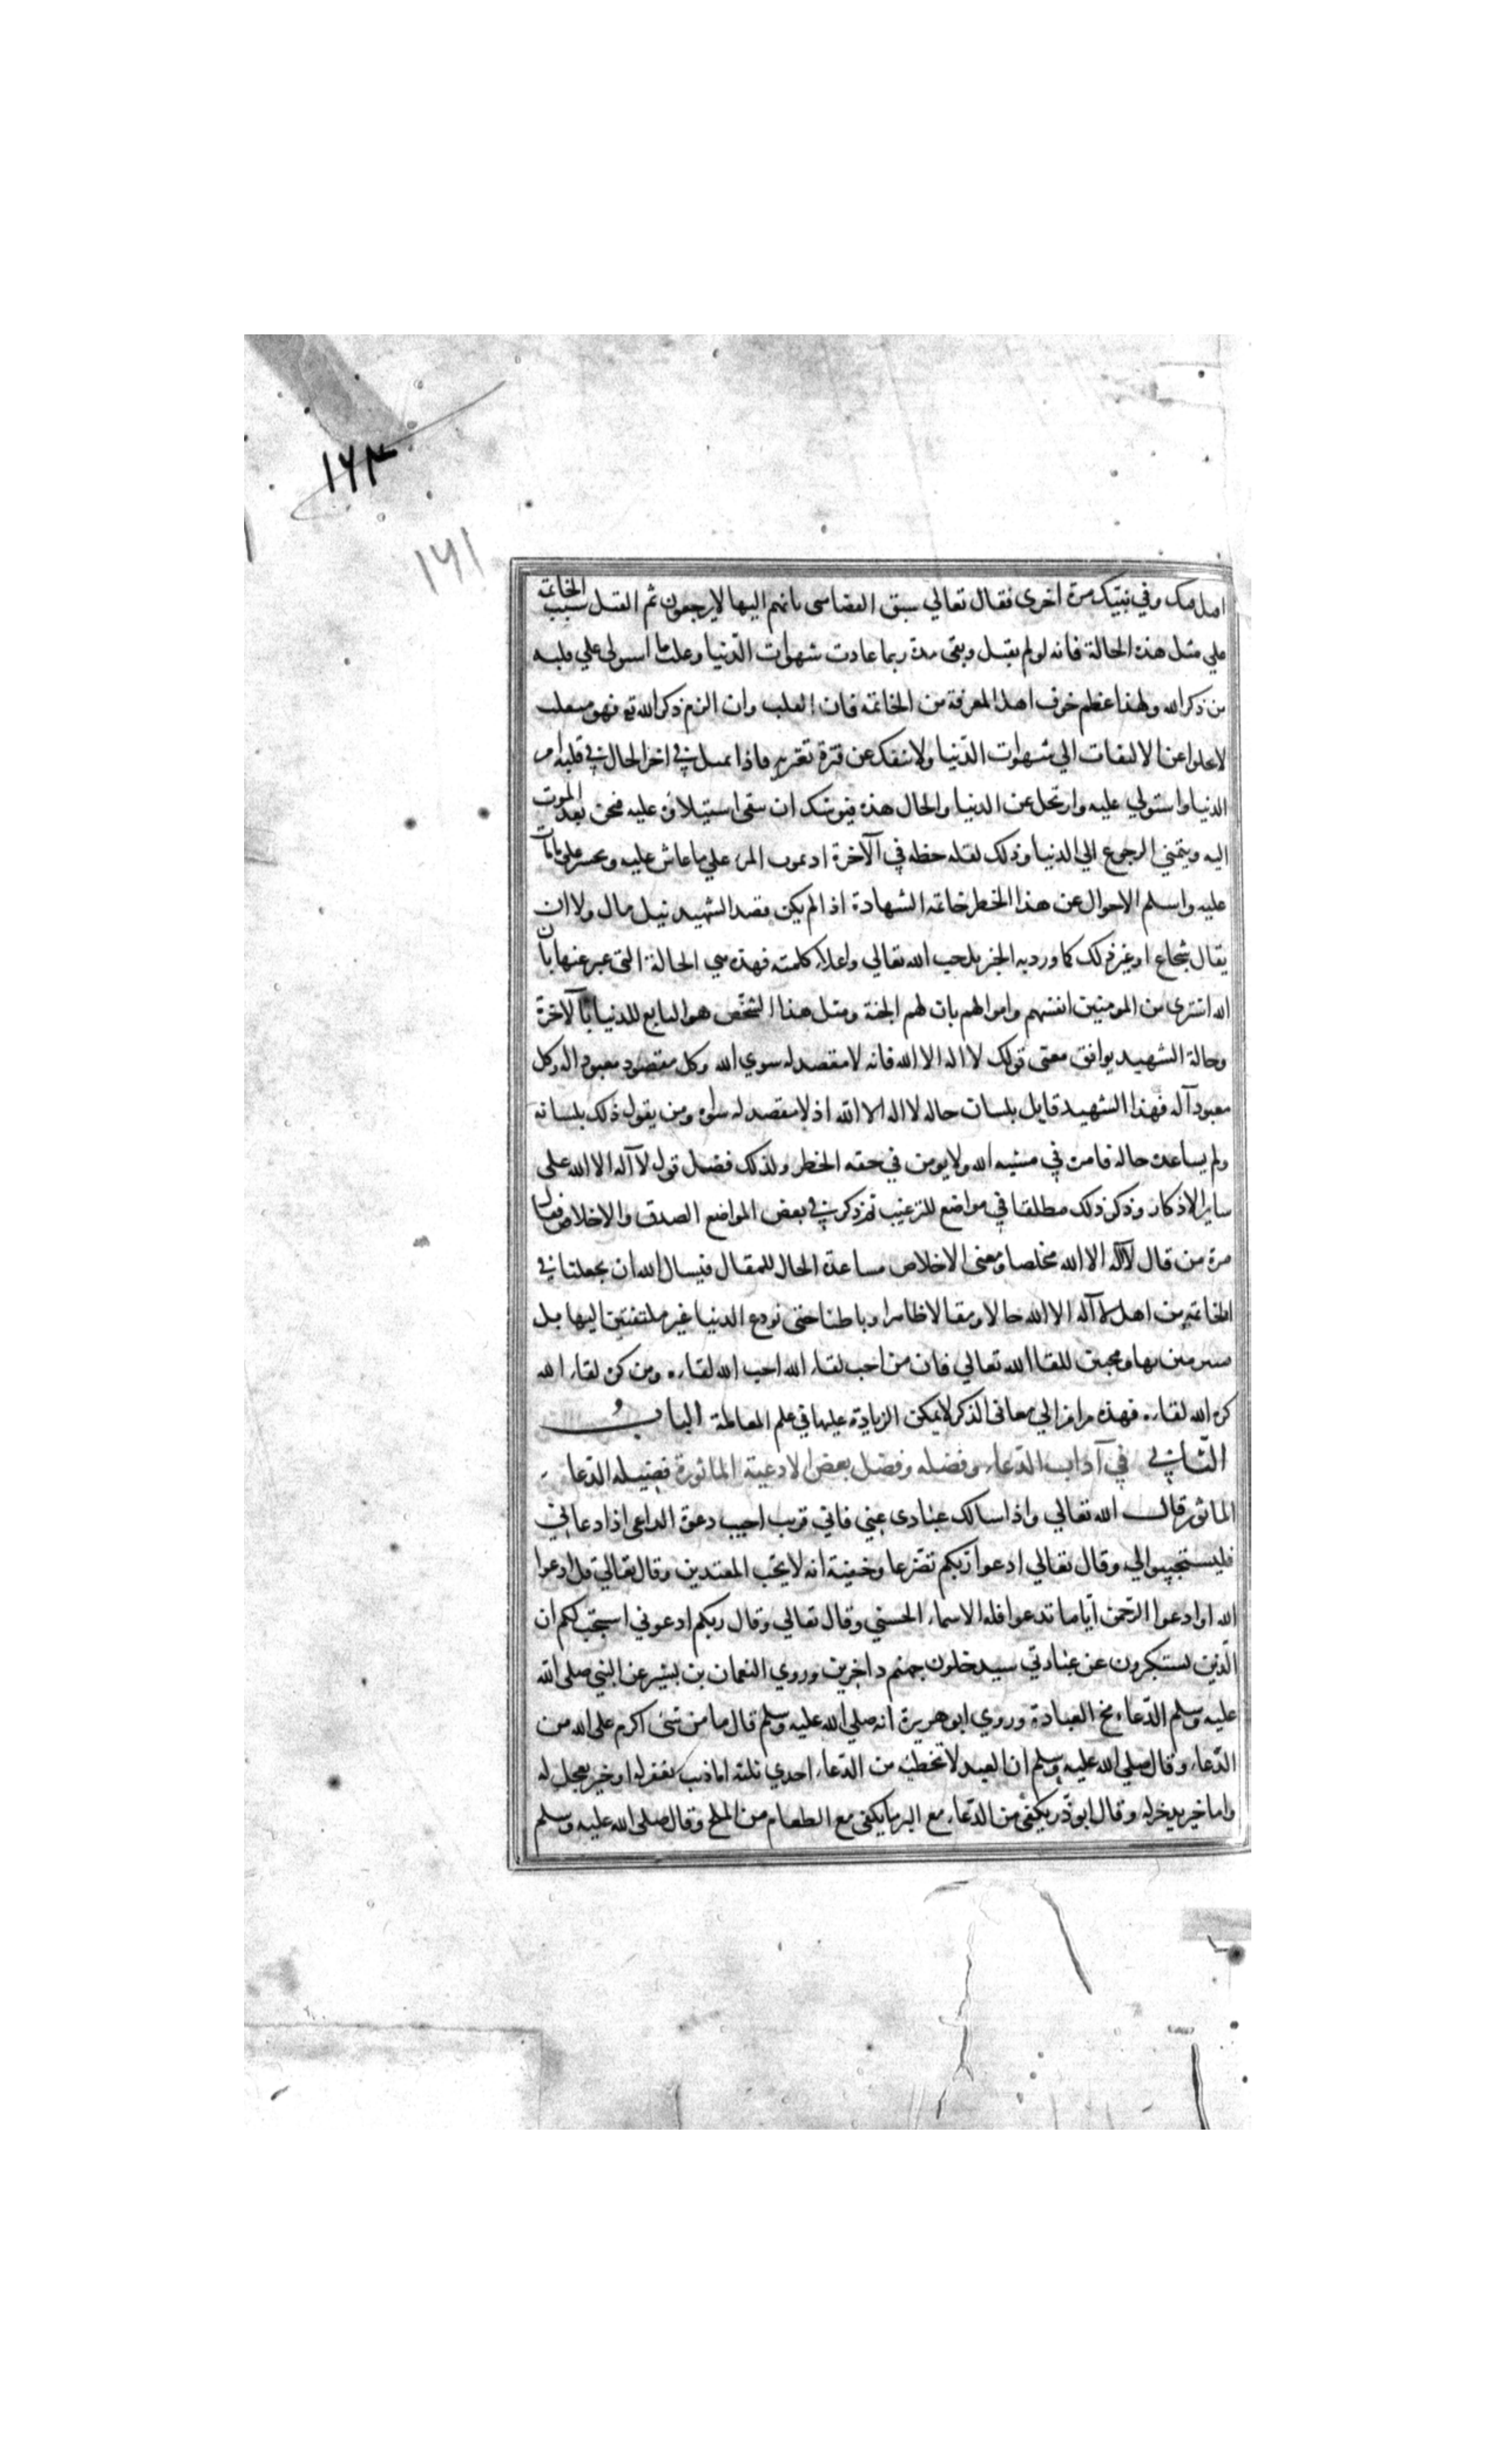 ١٦٣
١٦١
اصل منك وفي نبتيك مرة اخرى فقال تعالي سبق القضا مني بانهم اليها لايرجعون ثم القتل سبب الخاتمة
علي مثل هذه الحالة فانه لو لم يقتل وبقي مدة ربما عادت شهوات الدنيا وغلبت ما استولي علي قلبه
من ذكر الله ولهذا عظم خوف اهل المعرفة من الخاتمه فان القلب وان الزم ذكر الله تع فهو متقلب
لا يخلوا عن الالتفات الي شهوات الدنيا ولا ينفك عن فترة تعتريه فاذا تمثل في اخر الحال في قلبه امر
الدنيا واستولي عليه وارتحل عن الدنيا والحال هذه فيوشك ان يبقى استيلاؤه عليه فيحن بعد الموت
اليه ويتمني الرجوع الي الدنيا وذلك لقله حظه في الآخرة اذ يموت المرء علي ما عاش عليه ويحشر علي ما مات
عليه واسلم الاحوال عن هذا الخطر خاتمه الشهادة اذا لم يكن قصد الشهيد نيل مال ولا ان
يقال شجاع او غير ذلك كما ورد به الخبر بل حب الله تعالي واعلاء كلمته فهذه هي الحالة التي عبر عنها بان
الله اشترى من المومنين انفسهم واموالهم بان لهم الجنة ومثل هذا الشخص هو البايع للدنيا بالآخرة
وحالة الشهيد يوافق معنى قولك لا اله الا الله فانه لا مقصد له سوي الله وكل مقصود معبود اله وكل
معبود آله فهذا الشهيد قايل بلسان حاله لا اله الا الله اذ لا مقصد له سواه ومن يقول ذلك بلسانه
ولم يساعده حاله فامره في مشيه الله ولا يومن في حقه الخطر ولذلك فضل قول لا آله الا الله على
ساير الاذكار وذكر ذلك مطلقا في مواضع للترغيب ثم ذكر في بعض المواضع الصدق والاخلاص فقال
مرة من قال لا آله الا الله مخلصا ومعنى الاخلاص مساعدة الحال للمقال فنسال الله ان يجعلنا في
الخاتمة من اهل لا آله الا الله حالا ومقالا ظاهرا وباطنا حتى نودع الدنيا غير ملتفتين اليها بل
متبرمين بها ومحبين للقا الله تعالي فان من احب لقاء الله احب الله لقاءه ومن كره لقاء الله
كره الله لقاءه فهذه مرامز الي معاني الذكر لا يمكن الزيادة عليها في علم المعاملة الباب
الثاني في آداب الدعاء وفضله وفضل بعض الادعية الماثورة فضيله الدعا
الماثور قال الله تعالي واذا سالك عبادى عني فاني قريب اجيب دعوة الداعي اذا دعاني
فليستجيبوا لي وقال تعالي ادعوا ربكم تضرعا وخفية انه لا يحب المعتدين وقال تعالي قل ادعوا
الله او ادعوا الرحمن أياما تدعوا فله الاسماء الحسني وقال تعالي وقال ربكم ادعوني استجب لكم ان
الذين يستكبرون عن عبادتي سيدخلون جهنم داخرين وروي النعمان بن بشير عن النبي صلى الله
عليه وسلم الدعاء مخ العبادة وروي ابو هريرة انه صلي الله عليه وسلم قال ما من شئ اكرم على الله من
الدعاء وقال صلي الله عليه وسلم ان العبد لا تخطئه من الدعاء احدي ثلثه اما ذنب يغفر له او خير يعجل له
واما خير يدخر له وقال ابو ذر يكفى من الدعاء مع البر ما يكفى مع الطعام من الملح وقال صلى الله عليه وسلم